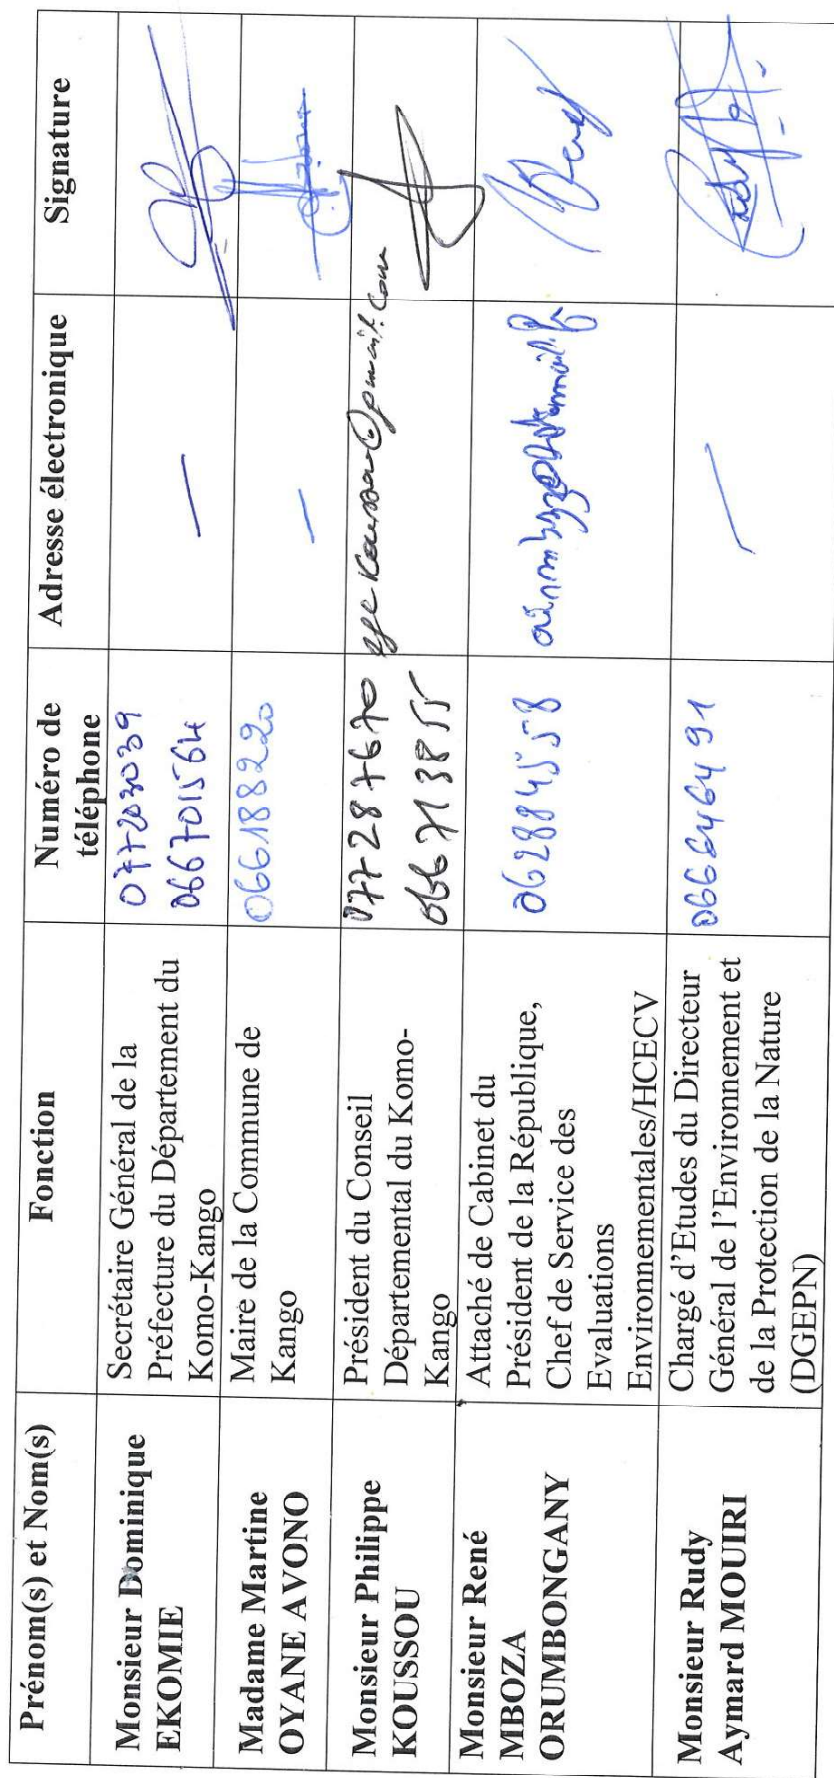 Prénom(s) et Nom(s)
Fonction
Numéro de
téléphone
Adresse électronique
Signature
Monsieur Dominique
EKOMIE
Secrétaire Général de la
Préfecture du Département du
Komo-Kango
077203039
066701564
—
Madame Martine
OYANE AVONO
Maire de la Commune de
Kango
066188220
—
Monsieur Philippe
KOUSSOU
Président du Conseil
Départemental du Komo-
Kango
077287670
066713855
Monsieur René
MBOZA
ORUMBONGANY
Attaché de Cabinet du
Président de la République,
Chef de Service des
Evaluations
Environnementales/HCECV
062884558
Monsieur Rudy
Aymard MOUIRI
Chargé d'Etudes du Directeur
Général de l'Environnement et
de la Protection de la Nature
(DGEPN)
066646491
—